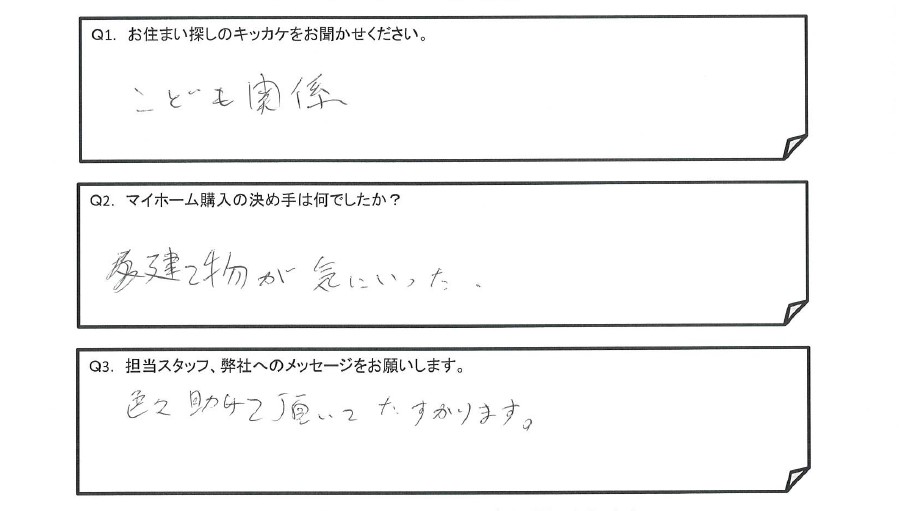 Q1. お住まい探しのキッカケをお聞かせください。
こども関係
Q2. マイホーム購入の決め手は何でしたか？
建て物が気にいった.
Q3. 担当スタッフ、弊社へのメッセージをお願いします。
色々助けて頂いてたすかります。